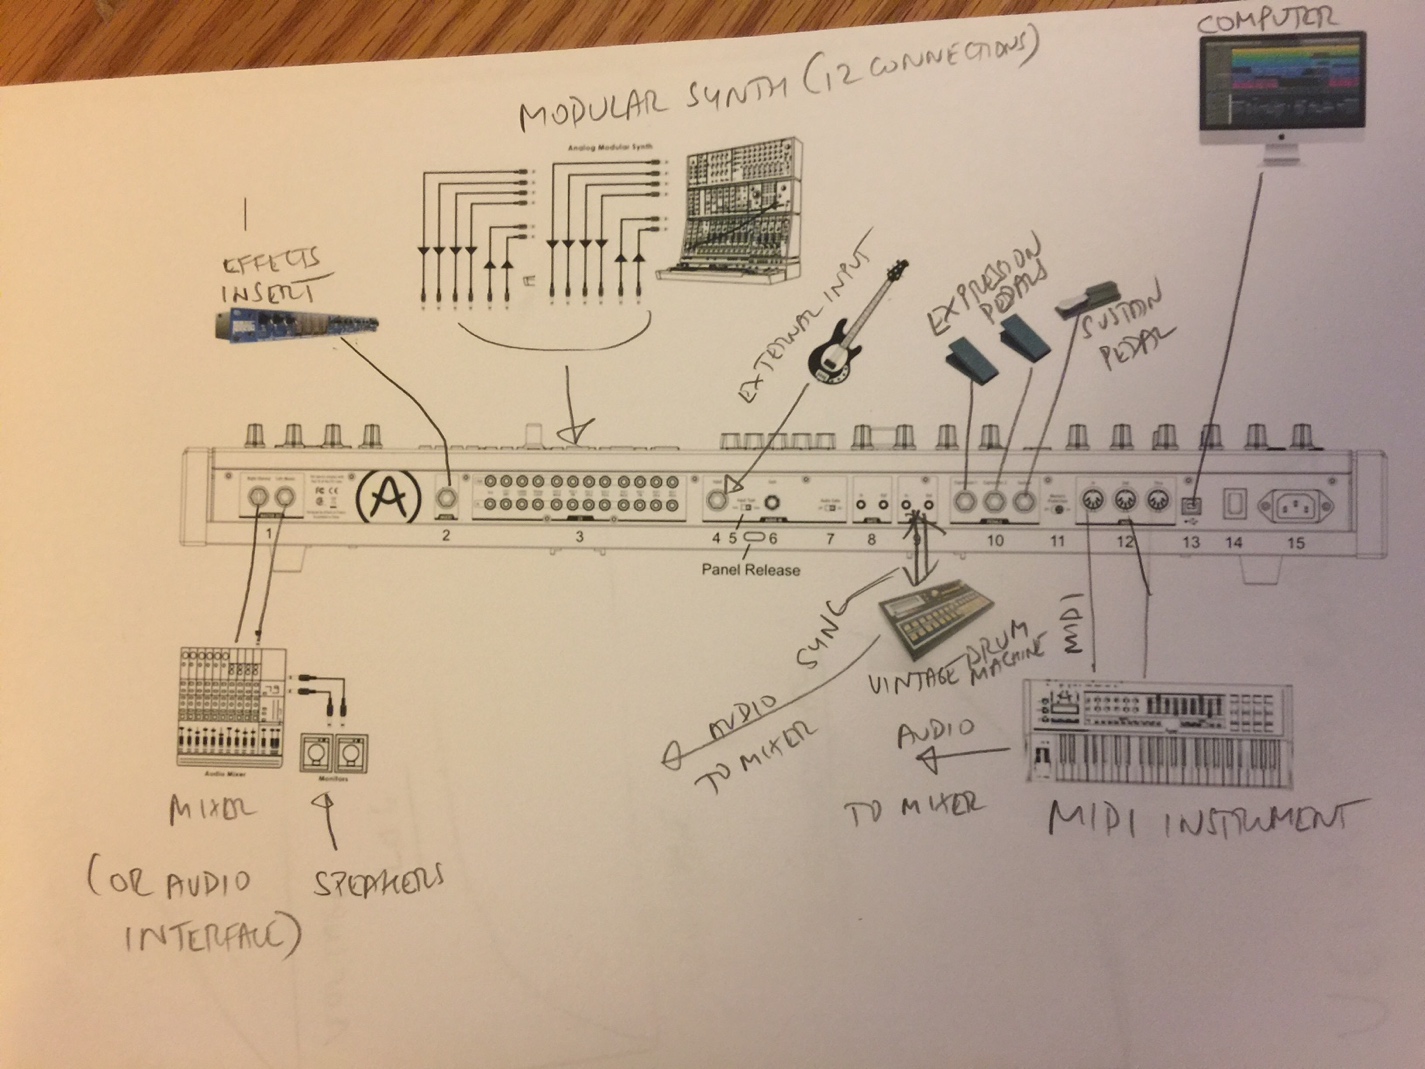 COMPUTER
MODULAR SYNTH (12 CONNECTIONS)
Analog Modular Synth
EFFECTS
INSERT
EXTERNAL INPUT
EXPRESSION
PEDALS
SUSTAIN
PEDAL
1
2
3
4 5 6
7
8
9
10
11
12
13
14
15
Panel Release
SYNC
MIDI
VINTAGE DRUM
MACHINE
AUDIO
TO MIXER
AUDIO
TO MIXER
MIDI INSTRUMENT
Audio Mixer
Monitors
MIXER
(OR AUDIO
INTERFACE)
SPEAKERS